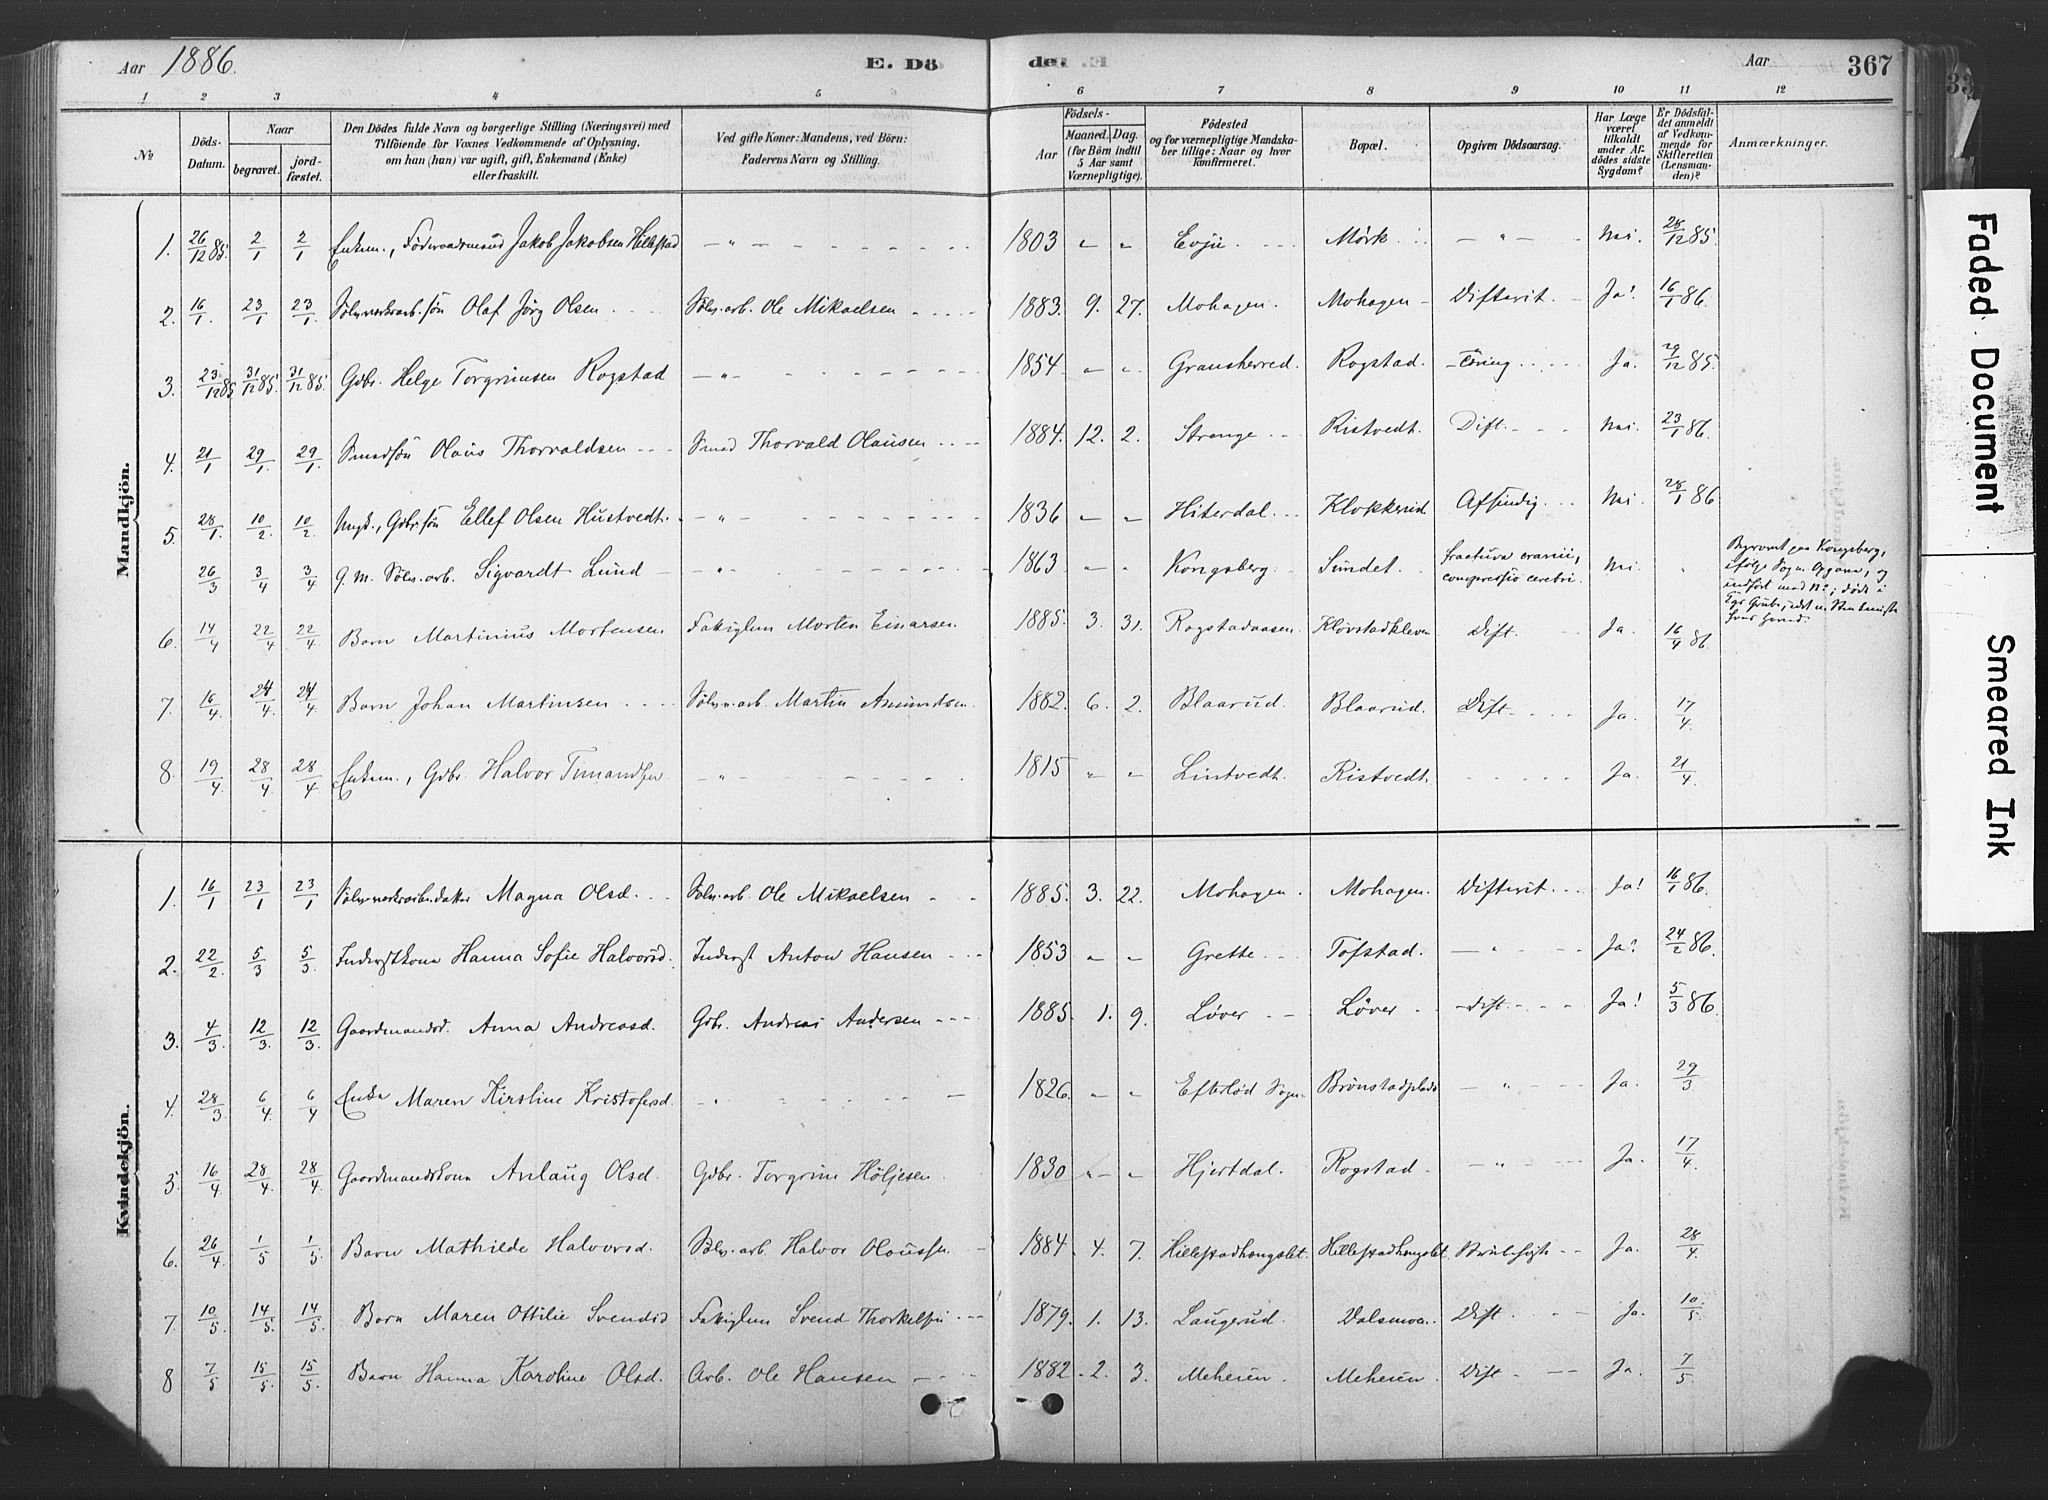 Aar 1886.
E. Dö
den
Aar
367
1 2 3 4 5 6 7 8 9 10 11 12
№
Döds-Datum.
Naar
begravet.
jord-fæstet.
Den Dödes fulde Navn og borgerlige Stilling (Næringsvei) med
Tilföiende for Voxnes Vedkommende af Oplysning,
om han (hun) var ugift, gift, Enkemand (Enke)
eller fraskilt.
Ved gifte Koner: Mandens, ved Börn:
Faderens Navn og Stilling.
Födsels-
Aar
Maaned. Dag.
(for Börn indtil
5 Aar samt
Værnepligtige).
Födested
og for værnepligtige Mandska-
ber tillige: Naar og hvor
konfirmeret.
Bopæl.
Opgiven Dödsaarsag.
Har Læge
været
tilkaldt
under Af-
dödes sidste
Sygdom?
Er Dödsfal-
det anmeldt
af Vedkom-
mende for
Skifteretten
(Lensman-
den)?
Anmærkninger.
Mandkjön.
1. 26/12 85. 2/1 2/1 Enkem., Föderaadsmand Jakob Jakobsen Hillestad — „ — 1803 „ „ Evju Mörk — „ — Nei. 28/12 85
2. 16/1 23/1 23/1 Sölvverksarb. sön Olaf Jörg Olsen Sölv.arb. Ole Mikaelsen 1883. 9. 27. Mohagen. Mohagen Difterit. Ja! 16/1 86.
3. 23/12 85 31/12 85. 31/12 85. Gdbr. Helge Torgrimsen Rogstad — „ — 1854 „ „ Gransherred. Rogstad. Tæring Ja. 29/12 85.
4. 21/1 29/1 29/1 Smedsön Olaus Thorvaldsen Smed Thorvald Olausen 1884. 12. 2. Strenge Ristvedt. Dift. Nei. 23/1 86.
5. 28/1 10/2 10/2 Ungk., Gdbr. sön Ellef Olsen Hustvedt. — „ — 1836 „ „ Hiterdal. Klokkerud Afsindig. Nei 28/1 86
26/3 3/4 3/4 g. m. Sölv. arb. Sigvardt Lund — „ — 1863 „ „ Kongsberg Sundet. fractura cranii, compressio cerebri. Nei. „ Begravet paa Kongsberg,
6. 14/4 22/4 22/4 Barn Martinius Mortensen Fattiglem Morten Einarsen 1885. 3. 31. Rogstadaasen. Klövstadkleven Dift. Ja. 16/4 86.
7. 16/4 24/4 24/4 Barn Johan Martinsen Sölvv.arb. Martin Amundsen. 1882. 6. 2. Blaarud. Blaarud. Dift. Ja. 17/4.
8. 19/4 28/4 28/4 Enkem., Gdbr. Halvor Timandsen — „ — 1815 „ „ Lintvedt. Ristvedt. Ja. 21/4
Kvindekjön.
1. 16/1 23/1 23/1 Sölvverksarbeid. datter Magna Olsd. Sölv.arb. Ole Mikaelsen 1885. 3. 22. Mohagen. Mohagen. Difterit Ja! 16/1 86.
2. 22/2 5/3 5/3 Inderstkone Hanna Sofie Halvorsd. Inderst Anton Hansen 1853 „ „ Grette Tofstad. — „ — Ja? 24/2 86.
3. 4/3 12/3 12/3 Gaardmandsd. Anna Andreasd. Gdbr. Andreas Andersen 1885. 1. 9. Löver Löver Dift. Ja! 5/3 86
4. 28/3 6/4 6/4 Enke Maren Kirstine Kristofersd. — „ — 1826. „ „ Eftelöd Sogn Brönstadplads — „ — Ja. 29/3
5. 16/4 28/4 28/4 Gaardmandskone Anlaug Olsd. Gdbr. Torgrim Höljesen 1830 „ „ Hjertdal. Rogstad. — „ — Ja. 17/4.
6. 26/4 1/5 1/5 Barn Mathilde Halvorsd. Sölv.arb. Halvor Olaussen 1884. 4. 7. Hillestadhengslet. Hillestadhengslet Ja. 28/4.
7. 10/5 14/5 14/5 Barn Maren Ottilie Svendsd Fattiglem Svend Thorkelsen 1879. 1. 13. Laugerud. Dalsmoen. Dift. Ja. 10/5
8 7/5 15/5 15/5 Barn Hanna Karoline Olsd. Arb. Ole Hansen 1882. 2. 3. Meheien. Meheien. Dift Ja. 7/5
Faded Document
Smeared Ink